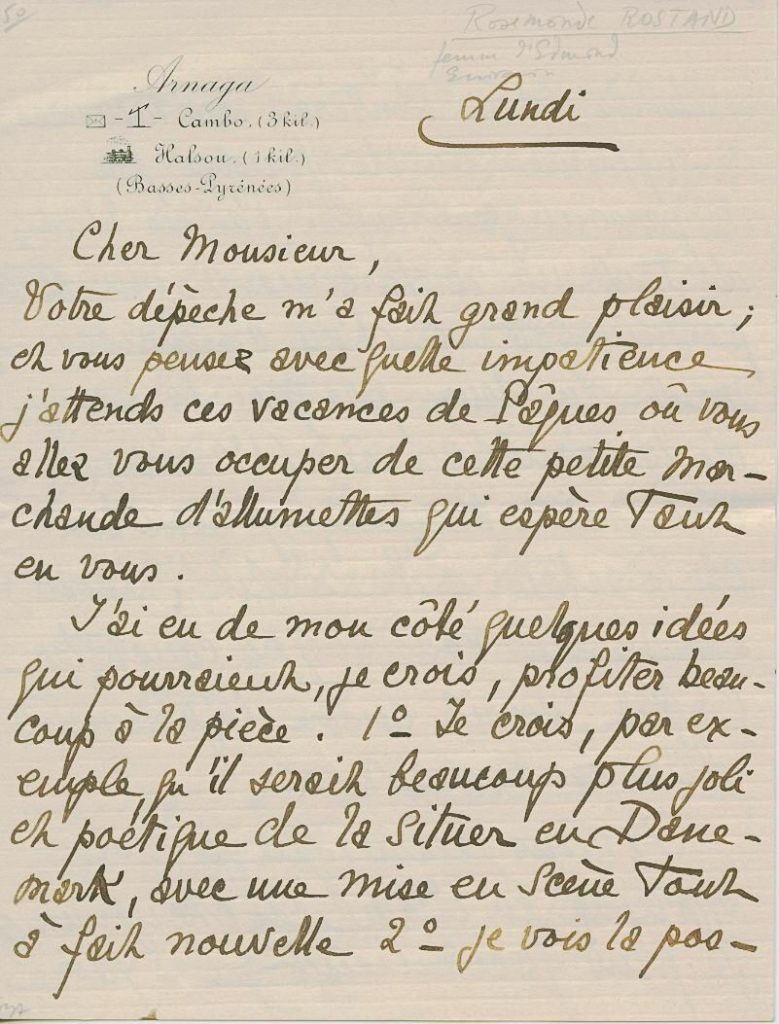 50
Rosemonde ROSTAND
femme d'Edmond
Arnaga
Lundi
Cambo. (3 kil.)
Halsou. (1 kil.)
(Basses-Pyrénées)
Cher Monsieur,
Votre dépèche m'a fait grand plaisir ;
et vous pensez avec quelle impatience
j'attends ces vacances de Pâques où vous
allez vous occuper de cette petite Mar-
chande d'allumettes qui espère Tant
en vous.
J'ai eu de mon côté quelques idées
qui pourraient, je crois, profiter beau-
coup à la pièce. 1º Je crois, par ex-
emple, qu'il serait beaucoup plus joli
et poétique de la situer en Dane-
mark, avec une mise en Scène Tout
à fait nouvelle 2º je vois la pos-